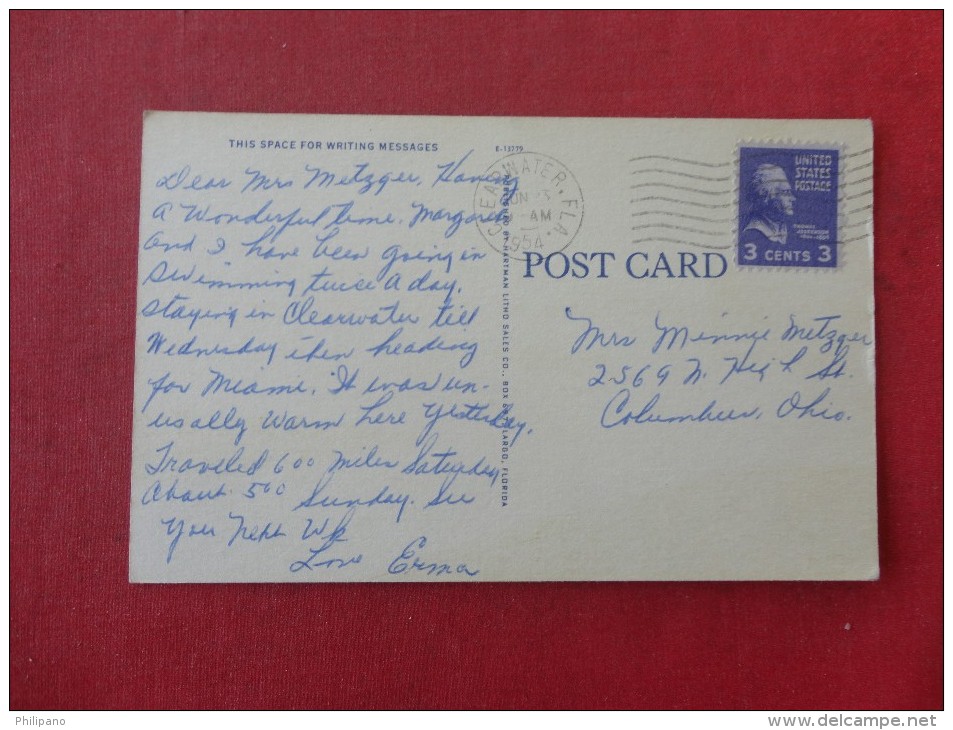 THIS SPACE FOR WRITING MESSAGES
Dear Mrs Metzger, Having
A Wonderful time. Margaret
and I have been going in
swimming twice A day.
Staying in Clearwater till
Wednesday then heading
for Miami. It was un-
usually warm here Yesterday.
Traveled 600 miles Saturday
About 500 Sunday. See
You Next Wk
Love Erma
E-13779
CLEARWATER, FLA.
JUN
AM
1954
PUBLISHED BY HARTMAN LITHO SALES CO., BOX LARGO, FLORIDA
UNITED
STATES
POSTAGE
THOMAS
JEFFERSON
3 CENTS 3
POST CARD
Mrs Minnie Metzger
2569 N. High St.
Columbus, Ohio.
Philipano
www.delcampe.net